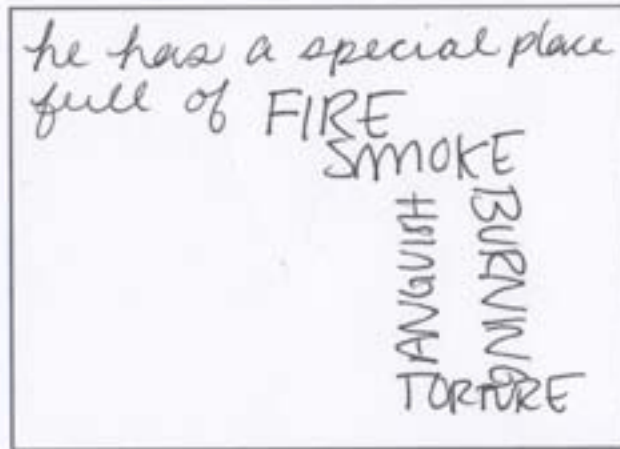 he has a special place
full of FIRE
SMOKE
ANGUISH
BURNING
TORTURE